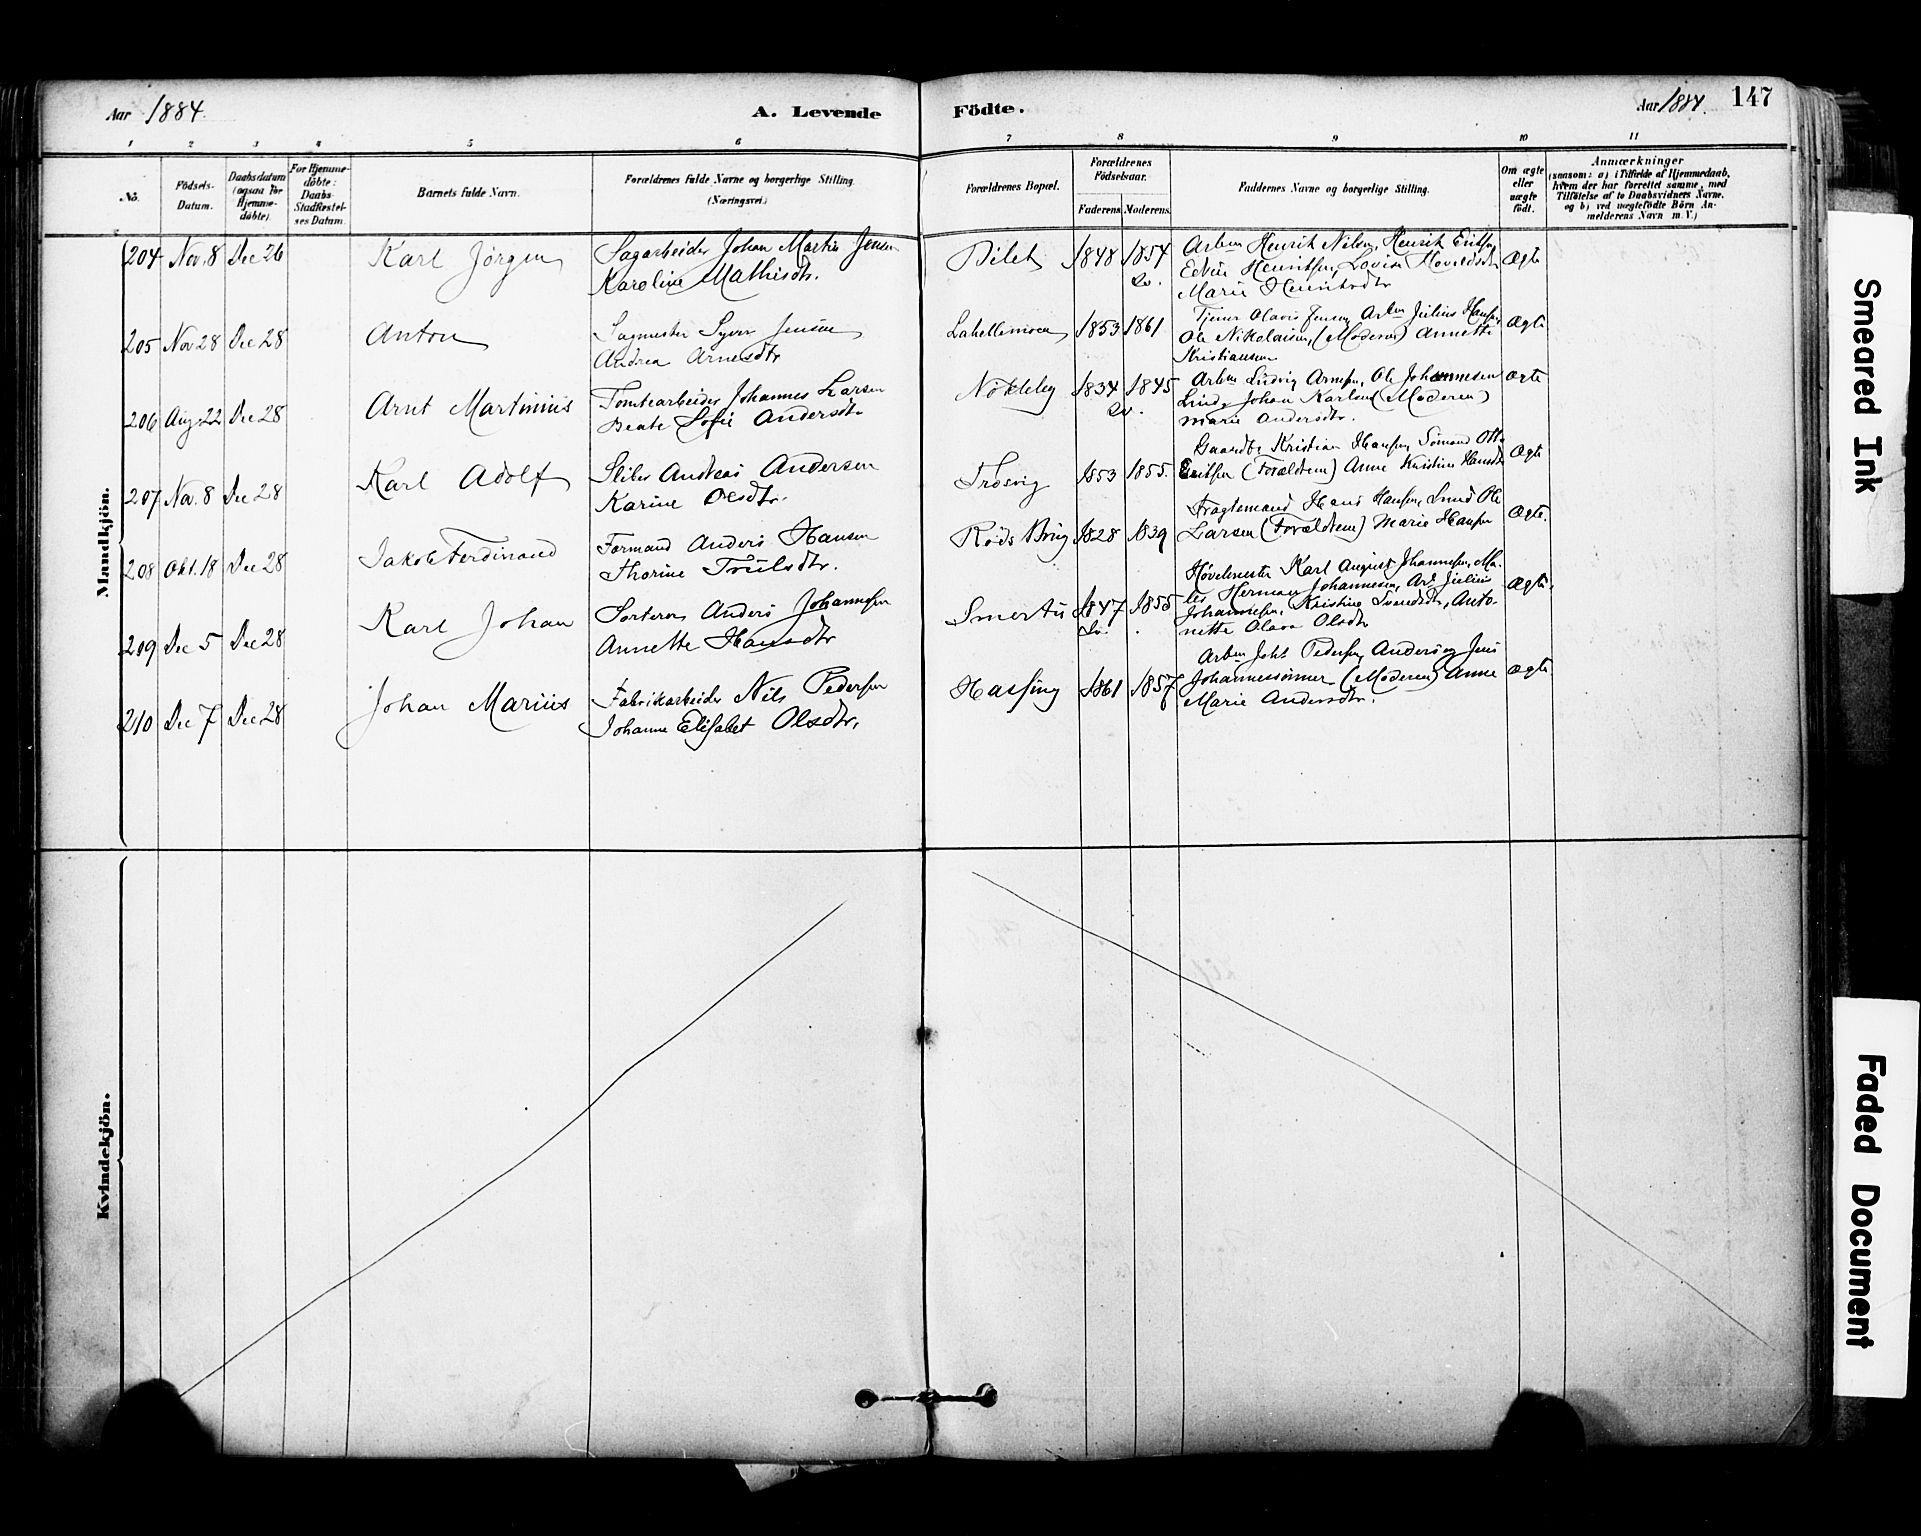 Aar 1884.
A. Levende
Födte.
Aar 1884.
147
1 2 3 4 5 6 7 8 9 10 11
No.
Födsels-
Datum.
Daabsdatum
(ogsaa for
Hjemme-
döbte).
For Hjemme-
döbte:
Daabs-
Stadfæstel-
ses Datum.
Barnets fulde Navn.
Forældrenes fulde Navne og borgerlige Stilling.
(Næringsvei.)
Forældrenes Bopæl.
Forældrenes
Födselsaar.
Faderens. Moderens.
Faddernes Navne og borgerlige Stilling.
Om ægte
eller
uægte
födt.
Anmærkninger
(saasom: a) i Tilfælde af Hjemmedaab,
hvem der har forrettet samme, med
Tilföielse af to Daabsvidners Navne,
og b) ved uægtefödte Börn An-
melderens Navn m. V.)
Mandkjön.
204 Nov. 8 Dec 26 Karl Jörgen
Sagarbeider Johan Martin Jensen
Karoline Mathisdtr.
Pilet 1848 1854
Sv.
Arbm Henrik Nilsen, Henrik Eriksen
Edvin Henriksen, Lovise
Marie Henriksdtr
Ægte
205 Nov 28 Dec 28 Anton
Sagmester Syver Jensen
Andrea Arnesdtr
Lahellemoen 1853 1861
Tjener Olavis Jensen Arbm Julius Hansen,
Ole Nikolaisen, (Moderen) Annette
Kristiansen
Ægte
206 Aug. 22 Dec 28 Arnt Martinius
Tomtearbeider Johannes Larsen
Beate Sofie Andersdtr
Nökleby 1834 1845
Sv.
Arbm Ludvig Arnesen, Ole Johannesen
Lund, Johan Karlsen (Moderen)
Marie Andersdtr.
Ægte
207 Nov. 8 Dec 28 Karl Adolf
Sliber Andreas Andersen
Karine Olsdtr.
Trosvig 1853 1855.
Gaardbr Kristian Hansen, Sömand Otto
Eriksen (Forældrene) Anne Kristine Hansdtr
Ægte
208 Okt. 18 Dec 28 Jakob Ferdinand
Formand Anders Hansen
Thorine Trulsdtr.
Röds Brug 1828 1839
Fragtemand Hans Hansen, Smed Ole
Larsen (Forældrene) Marie Hansen
Ægte.
209 Dec 5 Dec 28 Karl Johan
Sorterer Anders Johannesen
Annette Hansdtr
Smertu 1847 1855
Sv.
Hövelmester Karl August Johannesen, Ma-
ler Herman Johannesen, Arb Julius
Johannesen, Kristine Svendsdtr, Anto-
nette Olava Olsdtr
Ægte.
210 Dec 7 Dec 28 Johan Marius
Fabrikarbeider Nils Pedersen
Johanne Elisabet Olsdtr.
Hassing 1861 1857
Arbm Johs Pedersen, Anders og Jens
Johannessönner (Moderen) Anne
Marie Andersdtr.
Ægte
Kvindekjön.
Smeared Ink
Faded Document